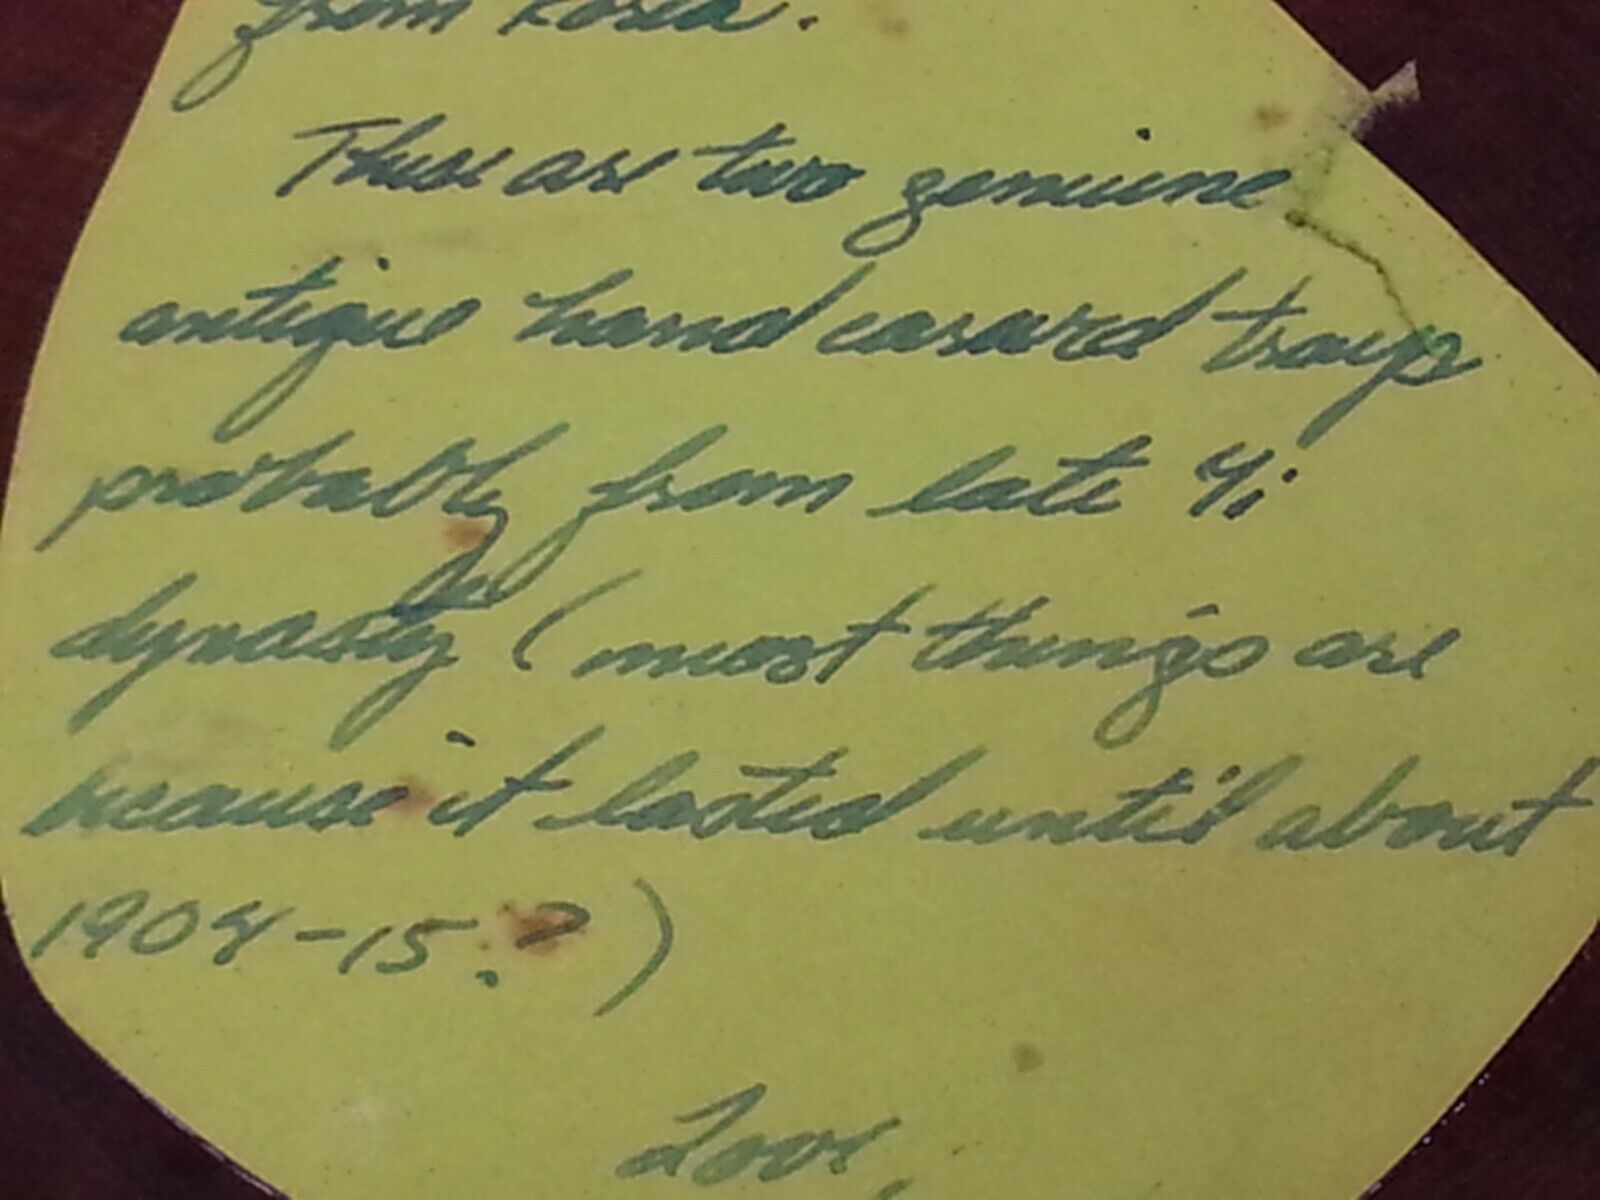 from Korea.
These are two genuine
antique hand carved trays
probably from late Yi
dynasty (most things are
because it lasted until about
1904-15?)
Love,